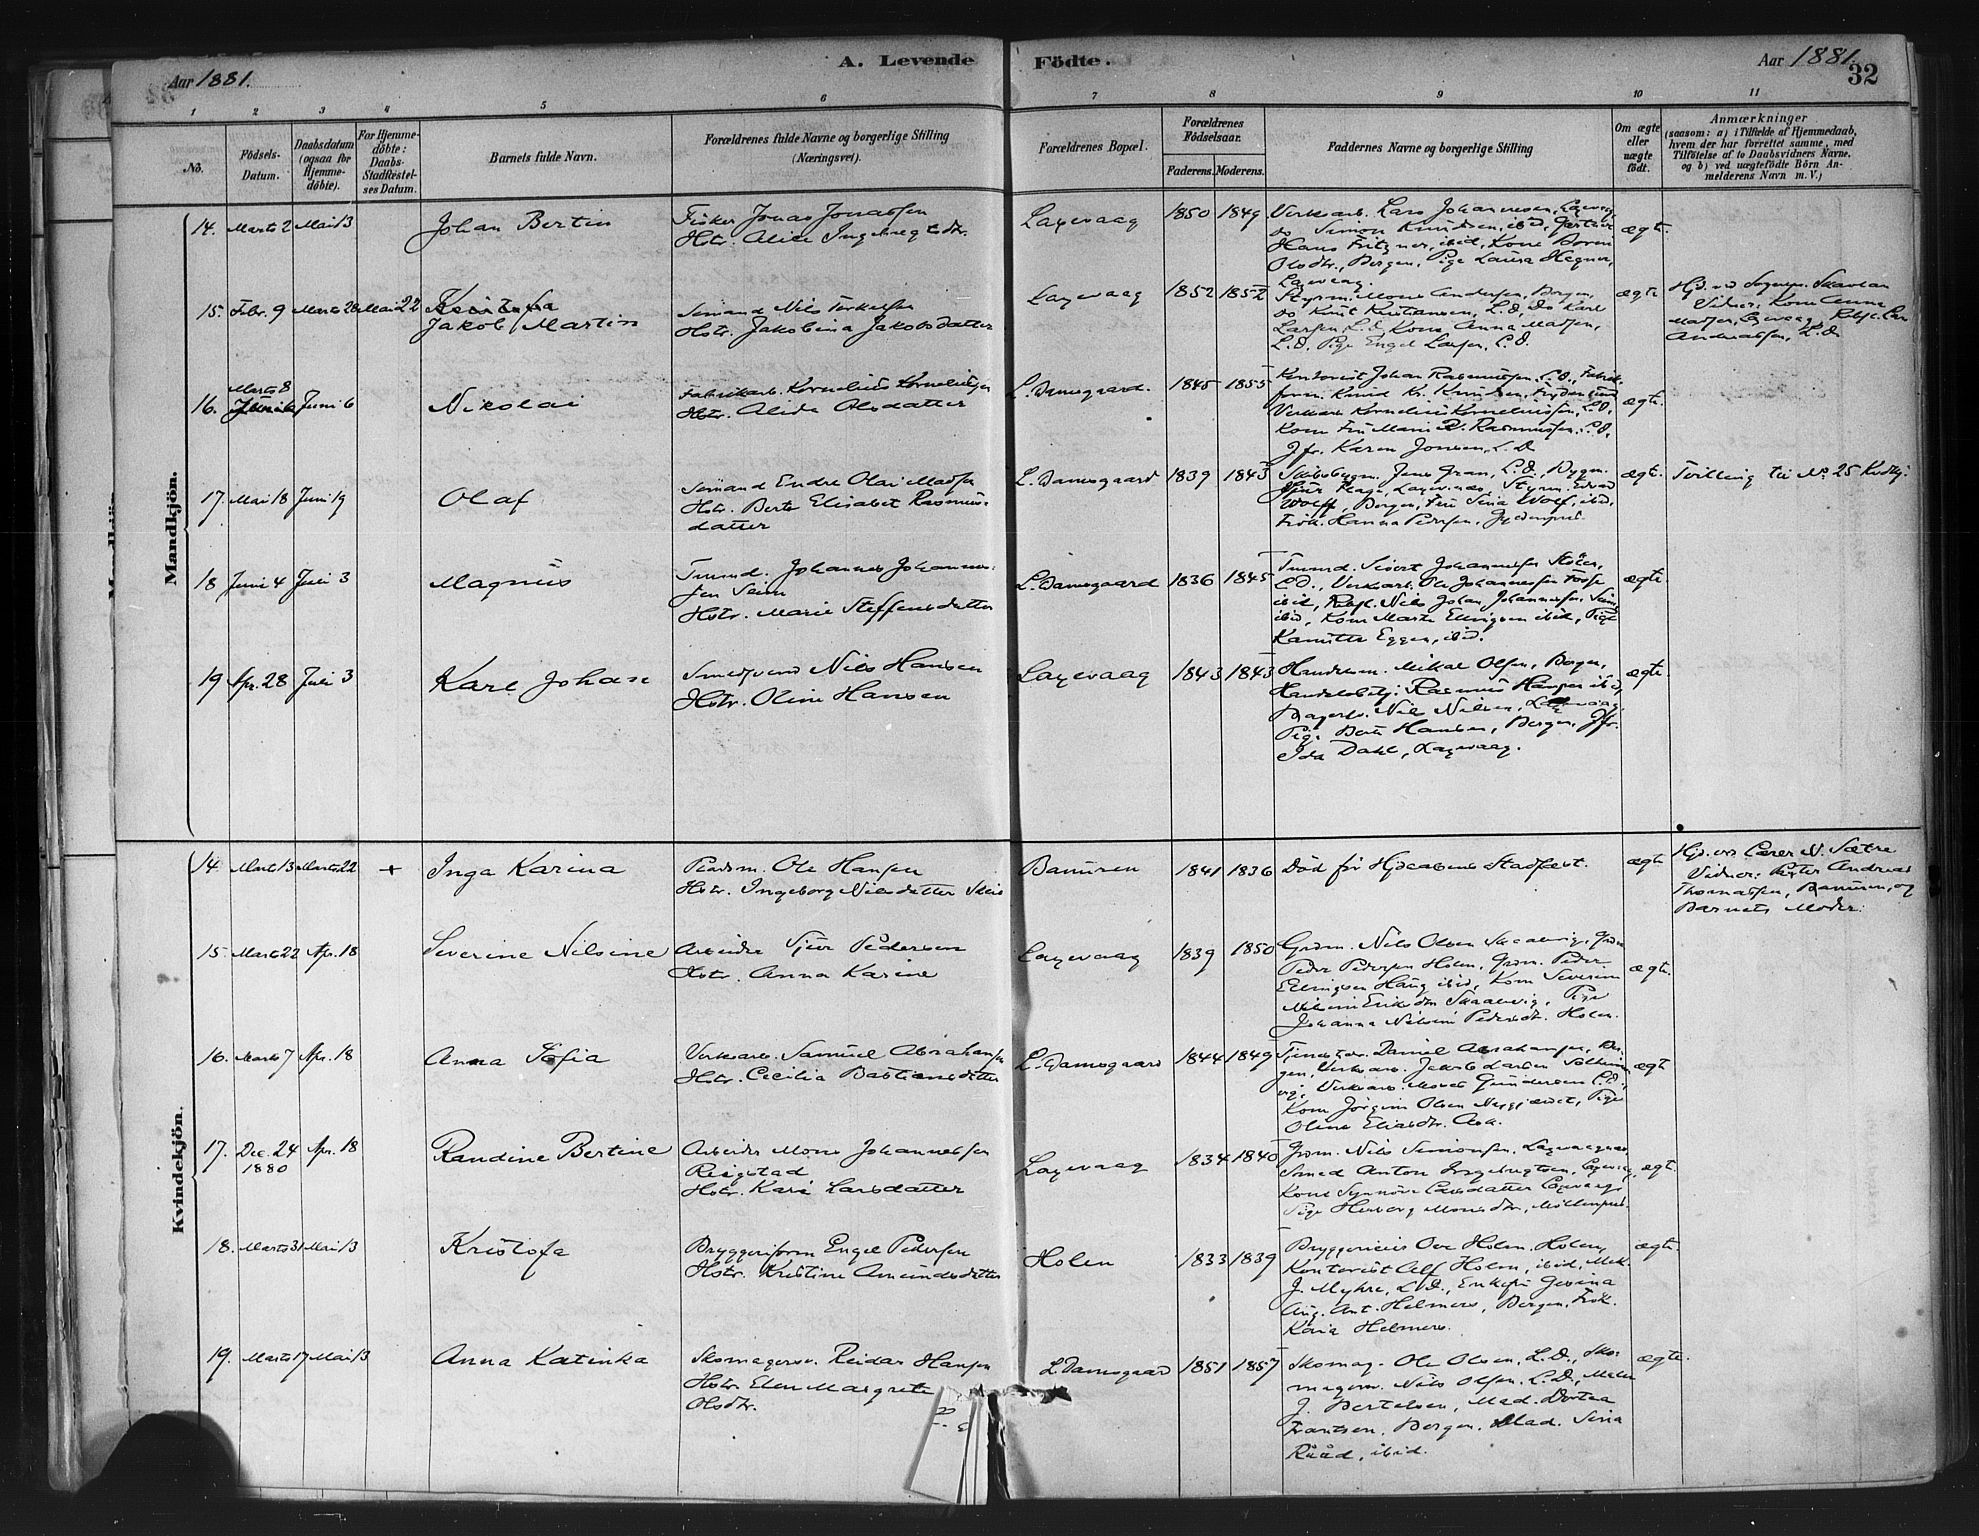 Aar 1881.
A. Levende Födte.
Aar 1881.
32
1 2 3 4 5 6 7 8 9 10 11
No.
Födsels-Datum.
Daabsdatum (ogsaa for Hjemme-döbte).
For Hjemme-döbte: Daabs-Stadfæstel-ses Datum.
Barnets fulde Navn.
Forældrenes fulde Navne og borgerlige Stilling (Næringsvei).
Forældrenes Bopæl.
Forældrenes Födselsaar.
Faderens. Moderens.
Faddernes Navne og borgerlige Stilling
Om ægte eller uægte födt.
Anmærkninger
(saasom: a) i Tilfælde af Hjemmedaab,
hvem der har forrettet samme, med
Tilföielse af to Daabsvidners Navne,
og b) ved uægtefödte Börn An-
melderens Navn m. V.)
Mandkjön.
14. Marts 2 Mai 13 Johan Bertin
Fisker Jonas Jonassen
Hstr. Alice Ingebregtsdtr.
Laxevaag 1850 1849
Verksarb. Lars Johannesen, Laxevaag,
do Simon Knudsen, ibid, Gartner
Hans Fritzner, ibid, Kone Boren
Olsdtr., Bergen, Pige Laura Hegner,
Laxevaag.
ægte.
15. Febr. 9 Marts 28 Mai 22 Kristofa
Jakob Martin
Sømand Nils Terkelsen
Hstr. Jakobina Jakobsdatter
Laxevaag 1852 1852
Styrm. Mons Andersen, Bergen,
do Knut Kristiansen, L.D. Do Karl
Larsen, L.D., Kone Anna Madsen,
L.D. Pige Engel Larsen, L.D.
ægte
Hjd. ved Sogepr. Skavlan
Vidner: Kone Anna
Madsen, Laxevaag, Rebsl. Lars
Andreassen, L.D.
16. Marts 8 Juni 6
Nikolai
Fabrikarb. Kornelius Korneliussen
Hstr. Alida Olsdatter
L. Damsgaard. 1845 1855
Kontorist Johan Rasmussen, L.D., Fabrik-
form. Knud Kr. Knudsen,
Verksarb. Kornelius Korneliussen, L.D.
Kone Fru Marie R. Rasmussen, L.D.
Jfr. Karen Jonsen, L.D.
ægte.
17. Mai 18 Juni 19 Olaf
Sømand Endre Olai Madsen
Hstr. Berte Elisabet Rasmus-
datter
L. Damsgaard 1839 1843
Skibsbygm. Jens Gran, L.D. Bygm.
Wolff, Bergen, Fru Sina Wolf, ibid,
Frök. Hanna Persen,
ægte.
Tvilling til No. 25 Kvdkj.
18 Juni 4 Juli 3 Magnus
Tmmd. Johannes Johannes-
sen Seim
Hstr. Marie Steffensdatter
L. Damsgaard 1836 1845
Tmmd. Sivert Johannessen
L.D., Verksarb. Ole Johannessen Fosse
ibid, Rebsl. Nils Johan Johannessen Seim,
ibid, Kone Marte Ellingsen ibid, Pige
Kamilla Eggen, ibid.
ægte.
19 Apr. 28 Juli 3 Karl Johan
Smedsvend Nils Hansen
Hstr. Oline Hansen
Laxevaag 1843 1843
Handelsm. Mikal Olsen, Bergen,
Handelsbetj. Rasmus Hansen ibid,
Bagersv. Nils Nilsen, Laxevaag,
Pige Berte Hansen, Bergen, Jfr.
Ida Dahl, Laxevaag.
ægte.
Kvindekjön.
14 Marts 13 Marts 22 + Inga Karina
Pladsm. Ole Hansen
Hstr. Ingeborg Nilsdatter
Banuren 1841 1836
Död för Hjdaabens Stadfæst.
ægte
Hjd. ved Lærer N. Sætre
Vidner: Peter Andreas
Thomassen, Banuren, og
Barnets Moder.
15. Marts 22 Apr. 18 Severine Nilsine
Arbeider Sjur Pedersen
Hstr. Anna Karine
Laxevaag 1839 1850
Grdm. Nils Olsen Skaalevig, Grdm.
Peder Pedersen Holen, Grdm. Peder
Ellingsen Haug ibid, Kone Severine
Nilsine Eriksdtr Skaalevig, Pige
Johanna Nilsine Pedersdtr. Holen.
ægte.
16. Marts 7 Apr. 18 Anna Sofia
Verksarb. Samuel Abrahamsen
Hstr. Cecilia Bastiansdatter
L. Damsgaard 1844 1849
Daniel Abrahamsen, Ber-
gen, Verksarb. Jakob Larsen
Verksarb. Mons Gundersen L.D.,
Kone Jörgine Olsen Nygaardet, Pige
Oline Eliasdtr. Ask.
ægte
17. Dec. 24 1880 Apr. 18 Randine Bertine
Arbeider Mons Johannessen
Reigstad
Hstr. Kari Larsdatter
Laxevaag 1834 1840
Grdm. Nils Simonsen, Laxevaagnes,
Smed Anton Ingebregtsen, Laxevaag,
Kone Synnöve Larsdatter Laxevaag,
Pige Herborg Monsdtr., Möllenpris.
ægte.
18. Marts 31 Mai 13 Kristofa
Bryggeriform. Engel Pedersen
Hstr. Kristine Amundsdatter
Holen 1833 1839
Bryggerieier Ole Holen, Holen,
Kontorist Alf Holen, ibid, Mek.
J. Myhre, L.D., Enkefru Gesina
Aug. Ant. Helmers, Bergen, Frök.
Karia Helmers.
ægte.
19. Marts 17 Mai 13 Anna Katinka
Skomagersv. Reidar Hansen
Hstr. Elen Margrete
Olsdtr.
L. Damsgaard 1851 1857
Skomag. Ole Olsen, L.D., Sko-
magersv. Nils Olsen, L.D., Maler
J. Bertelsen, Mad. Dortea
Frantsen, Bergen, Mad. Sina
Rååd, ibid.
ægte.